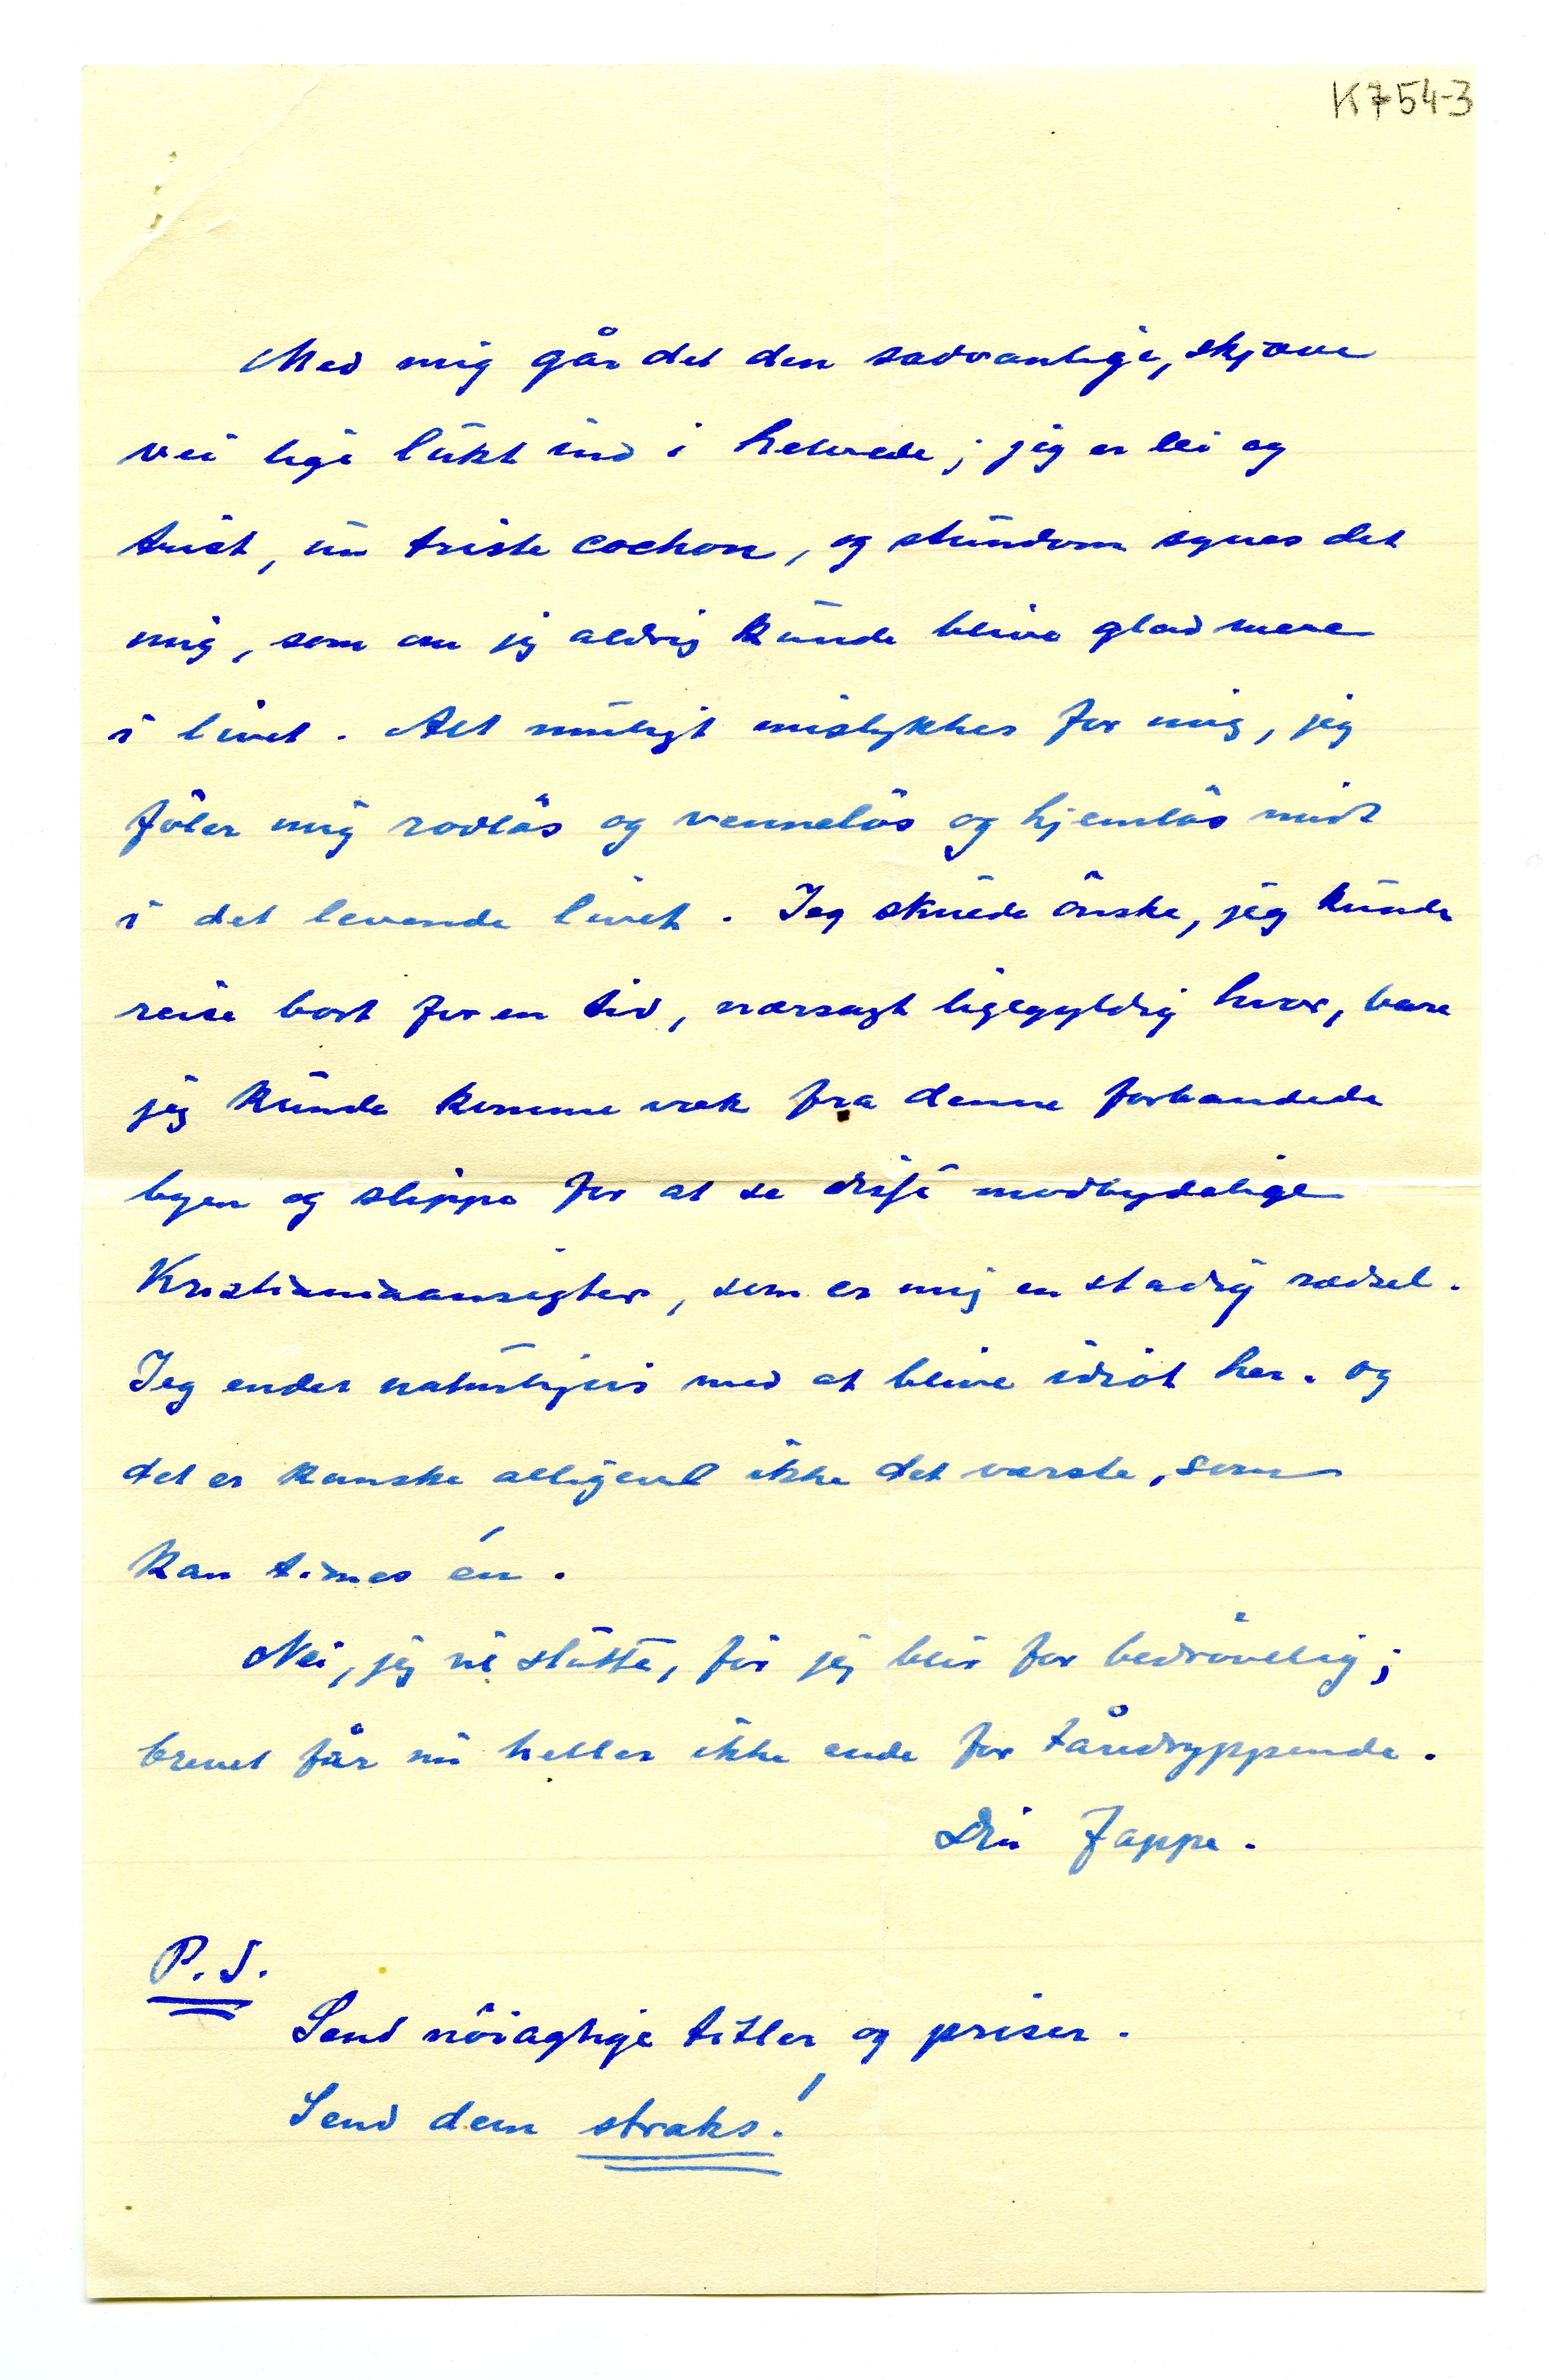 K754-3
Med mig går det den sædvanlige, skjæve
vei lige lukt ind i helvede; jeg er lei og
trist, un triste cochon, og stundom synes det
mig, som om jeg aldrig kunde blive glad mere
i livet. Alt muligt mislykkes for mig, jeg
föler mig rodlös og vennelös og hjemlös midt
i det levende livet. Jeg skulde önske, jeg kunde
reise bort for en tid, nærsagt ligegyldig hvor, bare
jeg kunde komme væk fra denne forbandede
byen og slippe for at se disse modbydelige
Kristianiaansigter, som er mig en stadig rædsel.
Jeg ender naturligvis med at blive idiot her. og
det er kanske alligevel ikke det værste, som
kan times én.
Nei, jeg vil slutte, för jeg blir for bedrövelig;
brevet får nu heller ikke ende for tåredryppende.
Din Jappe.
P.S.
Send nöiagtige titler og priser.
Send dem straks!